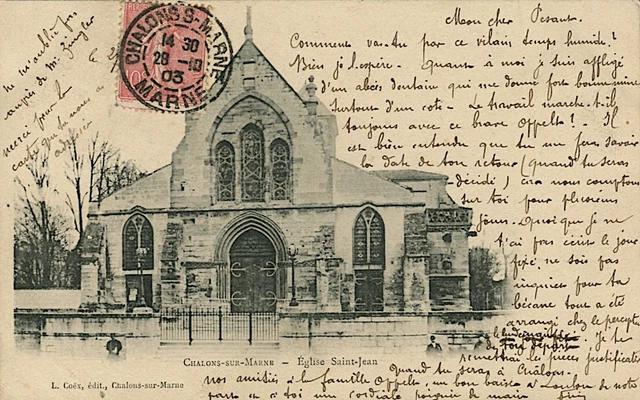 Mon cher Pesant.
Comment vas-tu par ce vilain temps humide?
Bien je l'espère. Quant à moi je suis affligé
d'un abcès dentaire qui me donne fort
surtout d'un coté. Le travail marche-t-il
toujours avec ce brave Oppelt! Il
est bien entendu que tu me feras savoir
la date de ton retour (quand tu seras
décidé) car nous comptons
sur toi pour plusieurs
jours. Quoique je ne
t'ai pas écrit le jour
fixé, ne sois pas
inquiet pour ta
bécane tout a été
arrangé chez le percepteur
le lendemain
de ton départ. Je te
remettrai les pièces justificatives
Quand tu seras à Châlons.
nos amitiés à la famille Oppelt, un bon baiser à de notre
part et à toi une cordiale poignée de main
tu m'oublie pas
auprès de Mr
merci pour la
carte
CHALONS-S-MARNE
14 30
28 -10
03
MARNE
10
CHALONS-SUR-MARNE — Église Saint-Jean
L. Coëx, édit., Chalons-sur-Marne